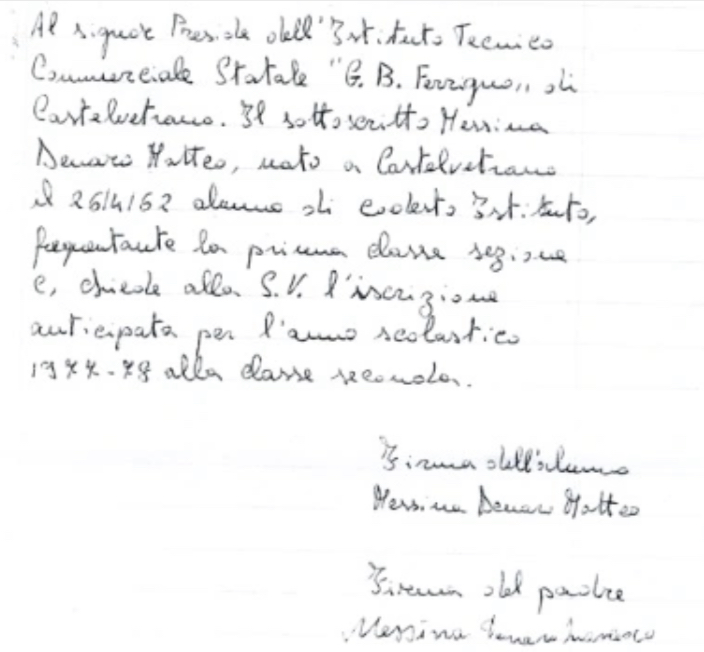 Al signor Preside dell'Istituto Tecnico
Commerciale Statale "G. B. Ferrigno,, di
Castelvetrano. Il sottoscritto Messina
Denaro Matteo, nato a Castelvetrano
il 26/4/62 alunno di codesto Istituto,
frequentante la prima classe sezione
C, chiede alla S.V. l'iscrizione
anticipata per l'anno scolastico
1977-78 alla classe seconda.
Firma dell'alunno
Messina Denaro Matteo
Firma del padre
Messina Denaro Francesco